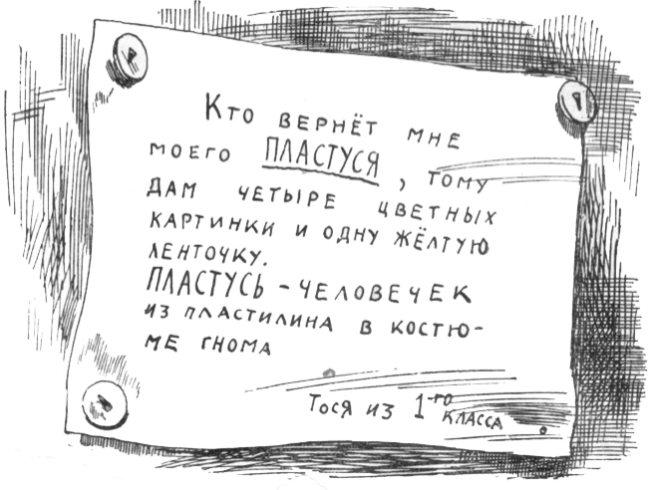 Кто вернёт мне
моего ПЛАСТУСЯ, тому
дам четыре цветных
картинки и одну жёлтую
ленточку.
ПЛАСТУСЬ - человечек
из пластилина в костю-
ме гнома
Тося из 1-го класса